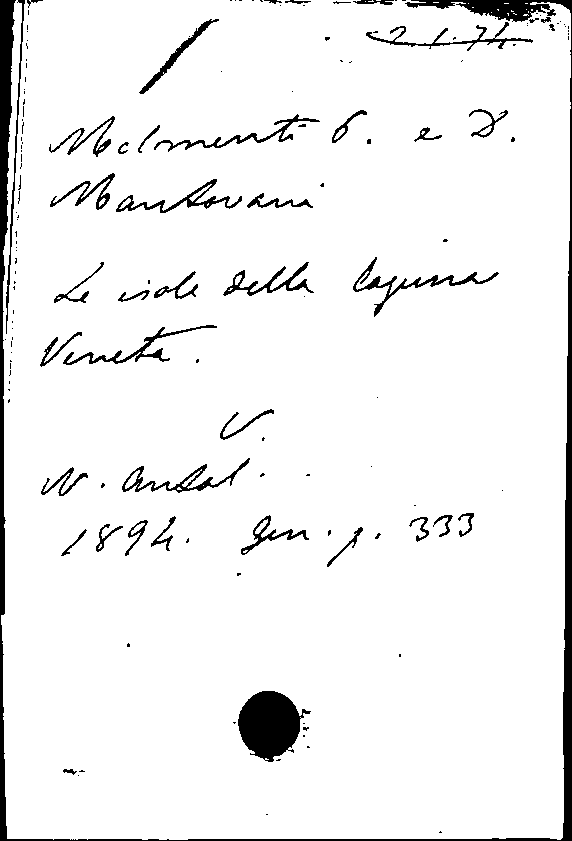 2.1.74.
Molmenti P. e D.
Mantovani
Le isole della laguna
Veneta.
V.
N. Antol.
1894. Gen. p. 333